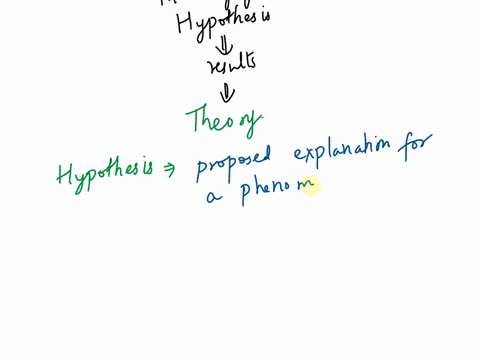 Hypothesis
results
Theory
Hypothesis ⇒ proposed explanation for
a phenom